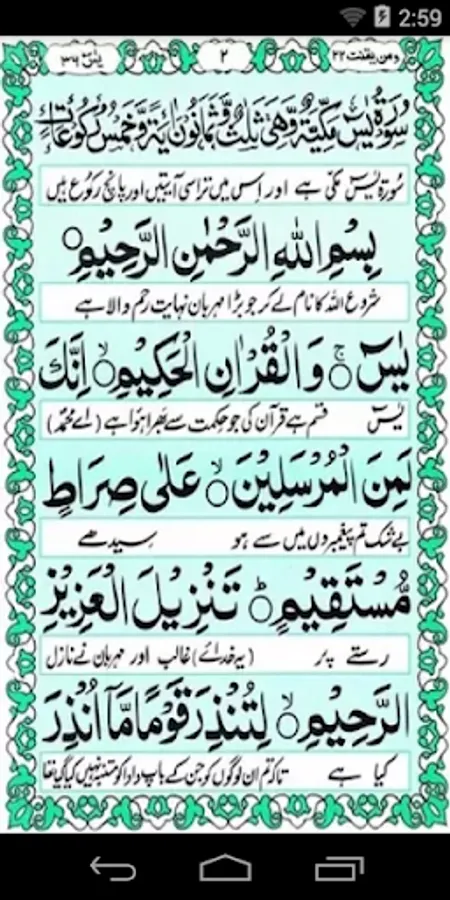 2:59
ومن یقنت ۲۲ ۲ یٰسٓ ۳۶
سُوْرَةُ يٰسٓ مَكِّيَّةٌ وَّهِيَ ثَلٰثٌ وَّثَمَانُوْنَ اٰيَةً وَّخَمْسُ رُكُوْعَاتٍ
سُورۃ یٰسٓ مکی ہے اور اس میں تراسی آیتیں اور پانچ رکوع ہیں
بِسْمِ اللهِ الرَّحْمٰنِ الرَّحِيْمِ ○
شروع اللہ کا نام لے کر جو بڑا مہربان نہایت رحم والا ہے
يٰسٓ ○ۚ وَالْقُرْاٰنِ الْحَكِيْمِ ○ۙ اِنَّكَ
یٰسٓ قسم ہے قرآن کی جو حکمت سے بھرا ہوا ہے (اے محمدؐ)
لَمِنَ الْمُرْسَلِيْنَ ○ۙ عَلٰى صِرَاطٍ
بے شک تم پیغمبروں میں سے ہو سیدھے
مُّسْتَقِيْمٍ ○ؕ تَنْزِيْلَ الْعَزِيْزِ
رستے پر (یہ خدائے) غالب اور مہربان نے نازل
الرَّحِيْمِ ○ۙ لِتُنْذِرَ قَوْمًا مَّاۤ اُنْذِرَ
کیا ہے تاکہ تم ان لوگوں کو جن کے باپ دادا کو متنبہ نہیں کیا گیا تھا